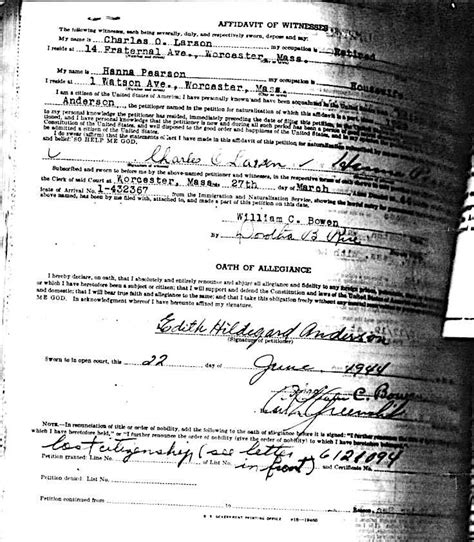 AFFIDAVIT OF WITNESSES
The following witnesses, each being severally, duly, and respectively sworn, depose and say:
My name is Charles O. Larson , my occupation is Retired
I reside at 14 Fraternal Ave., Worcester, Mass.
My name is Hanna Pearson , my occupation is House
I reside at 1 Watson Ave., Worcester, Mass.
I am a citizen of the United States of America; I have personally known and have been acquainted in the United States
Anderson , the petitioner named in the petition for naturalization of which this affidavit is a part,
to my personal knowledge the petitioner has resided, immediately preceding the date of filing this petition,
and I have personal knowledge that the petitioner is now and during all such periods has been a person of good
Constitution of the United States, and well disposed to the good order and happiness of the United States,
be admitted a citizen of the United States.
I do swear (affirm) that the statements of fact I have made in this affidavit of this petition for naturalization
and belief: SO HELP ME GOD.
Charles O. Larson
Subscribed and sworn to before me by the above-named petitioner and witnesses, in the respective forms of
the Clerk of said Court at Worcester, Mass. 27th day of March
of Arrival No. 1-432367 from the Immigration and Naturalization Service, showing the lawful
above named, has been by me filed with, attached to, and made a part of this petition on this date.
William C. Bowen
By
OATH OF ALLEGIANCE
I hereby declare, on oath, that I absolutely and entirely renounce and abjure all allegiance and fidelity to any foreign prince,
or which I have heretofore been a subject or citizen; that I will support and defend the Constitution and laws of the United States
and domestic; that I will bear true faith and allegiance to the same; and that I take this obligation freely without any mental
ME GOD. In acknowledgment whereof I have hereunto affixed my signature.
Edith Hildegard Anderson
(Signature of petitioner)
Sworn to in open court, this 22 day of June 1944
C. Bowen
NOTE.—In renunciation of title or order of nobility, add the following to the oath of allegiance before it is signed: "I further
which I have heretofore held," or "I further renounce the order of nobility (give the order of nobility) to which I have heretofore
lost citizenship (see letter 6121094
in front)
Petition granted: Line No. of List No. and Certificate No.
Petition denied: List No.
Petition continued from to
U. S. GOVERNMENT PRINTING OFFICE